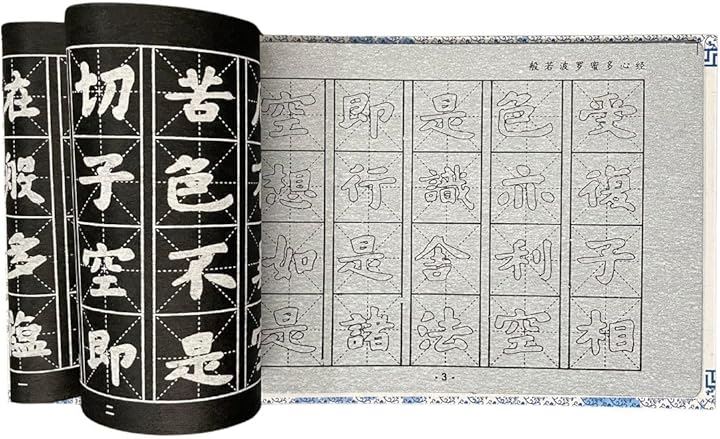 在
般
多
一
切苦
子色不
空不
即是
二
般若波罗蜜多心经
空即是色受
想行識亦複
如是舍利子
是諸法空相
- 3 -